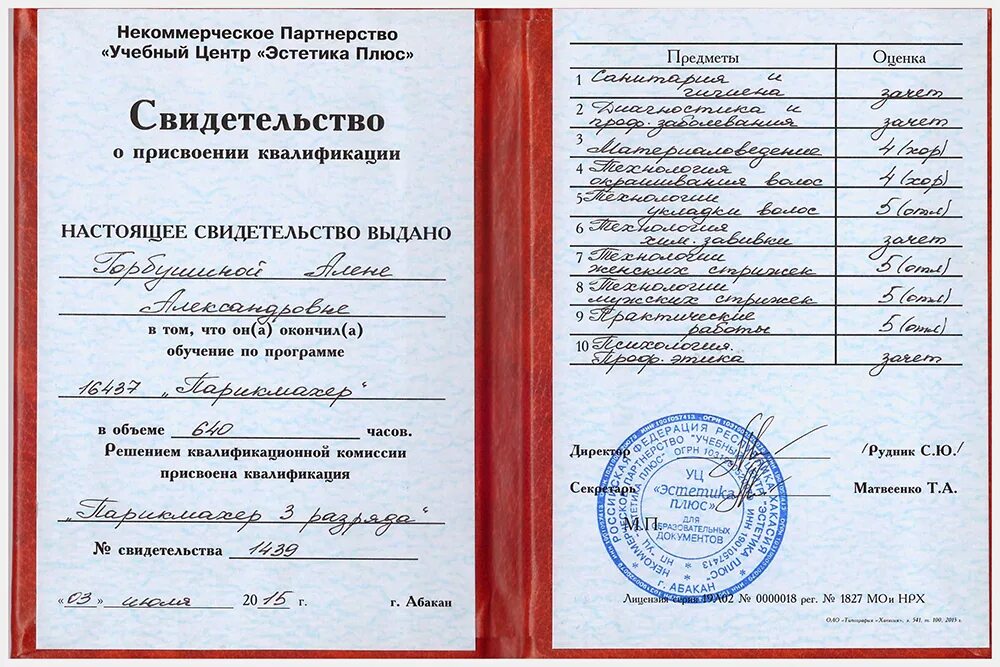 Некоммерческое Партнерство
«Учебный Центр «Эстетика Плюс»
Свидетельство
о присвоении квалификации
НАСТОЯЩЕЕ СВИДЕТЕЛЬСТВО ВЫДАНО
Горбушиной Алене
Александровне
в том, что он(а) окончил(а)
обучение по программе
16437 „Парикмахер"
в объеме 640 часов.
Решением квалификационной комиссии
присвоена квалификация
„Парикмахер 3 разряда"
№ свидетельства 1439
«03» июля 2015 г. г. Абакан
Предметы Оценка
1 Санитария и
гигиена зачет
2 Диагностика и
проф. заболевания зачет
3 Материаловедение 4 (хор)
4 Технология
окрашивания волос 4 (хор)
5 Технологии
укладки волос 5 (отл)
6 Технология
хим. завивки зачет
7 Технологии
женских стрижек 5 (отл)
8 Технологии
мужских стрижек 5 (отл)
9 Практические
работы 5 (отл)
10 Психология.
Проф. этика зачет
Директор /Рудник С.Ю./
Секретарь Матвеенко Т.А.
М.П.
РОССИЙСКАЯ ФЕДЕРАЦИЯ РЕСПУБЛИКА ХАКАСИЯ
г. АБАКАН
УЦ
«Эстетика
плюс»
ДЛЯ
ОБРАЗОВАТЕЛЬНЫХ
ДОКУМЕНТОВ
Лицензия серия 19А02 № 0000018 рег. № 1827 МОиН РХ
ОАО «Типография «Хакасия», з. 541, т. 100, 2015 г.